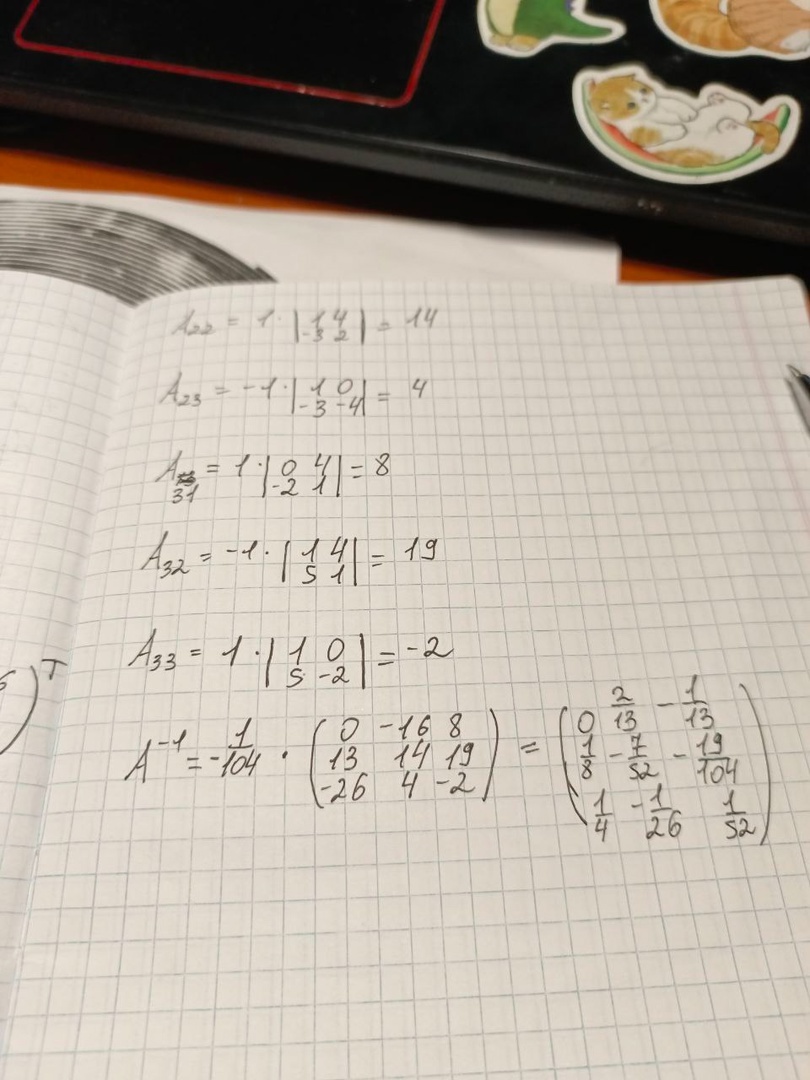 A₂₂ = 1 · |1 4; -3 2| = 14
A₂₃ = -1 · |1 0; -3 -4| = 4
A₃₁ = 1 · |0 4; -2 1| = 8
A₃₂ = -1 · |1 4; 5 1| = 19
A₃₃ = 1 · |1 0; 5 -2| = -2
)ᵀ
A⁻¹ = -1/104 · (0 -16 8; 13 14 19; -26 4 -2) = (0 2/13 -1/13; 1/8 -7/52 -19/104; 1/4 -1/26 1/52)